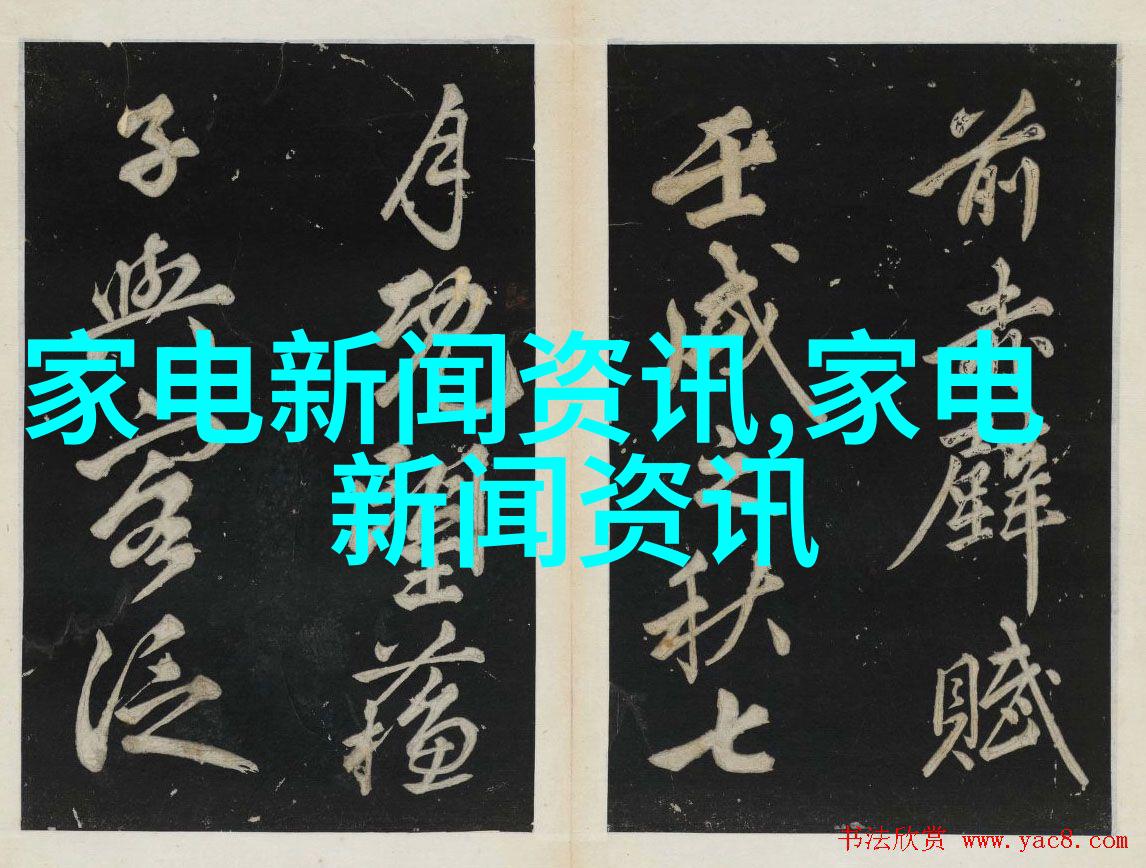 前赤壁賦
壬戌之秋七
月既望蘓
子與客泛
家电新闻资讯,家电
新闻资讯
书法欣赏 www.yac8.com